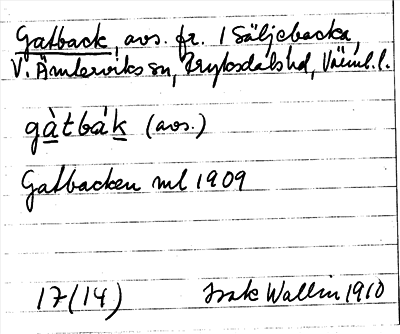 Gatback, avs. fr. 1 Säljebacka,
V. Ämterviks sn, Fryksdals hd, Värml. l.
gàtbák (avs.)
Gatbacken ml 1909
17(14) Isak Wallin 1910